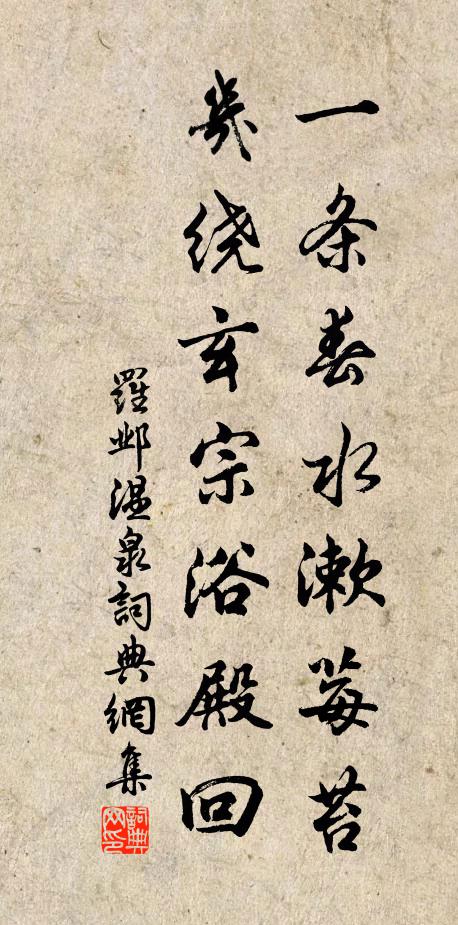 一条春水漱莓苔
几绕玄宗浴殿回
羅邺温泉詞典網集
詞典网印